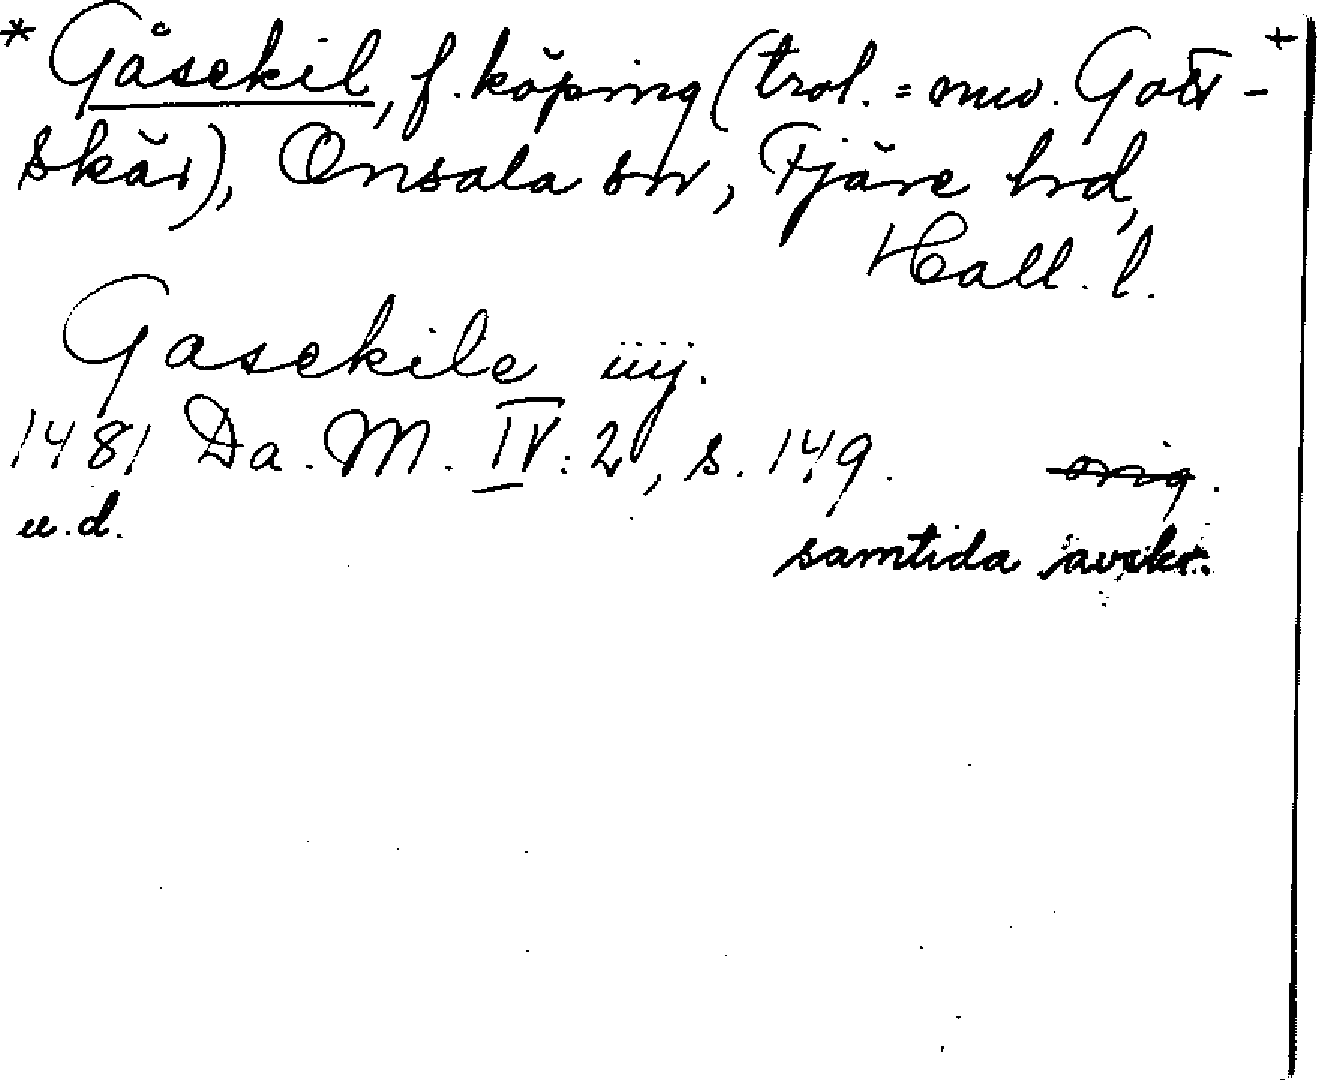 * Gåsekil, f. köping (trol. = nuv. Gott- +
skär), Onsala sn, Fjäre hrd,
Hall. l.
Gasekile iiij.
1481 Da. M. IV: 2, s. 149. orig.
u.d.
samtida avskr.